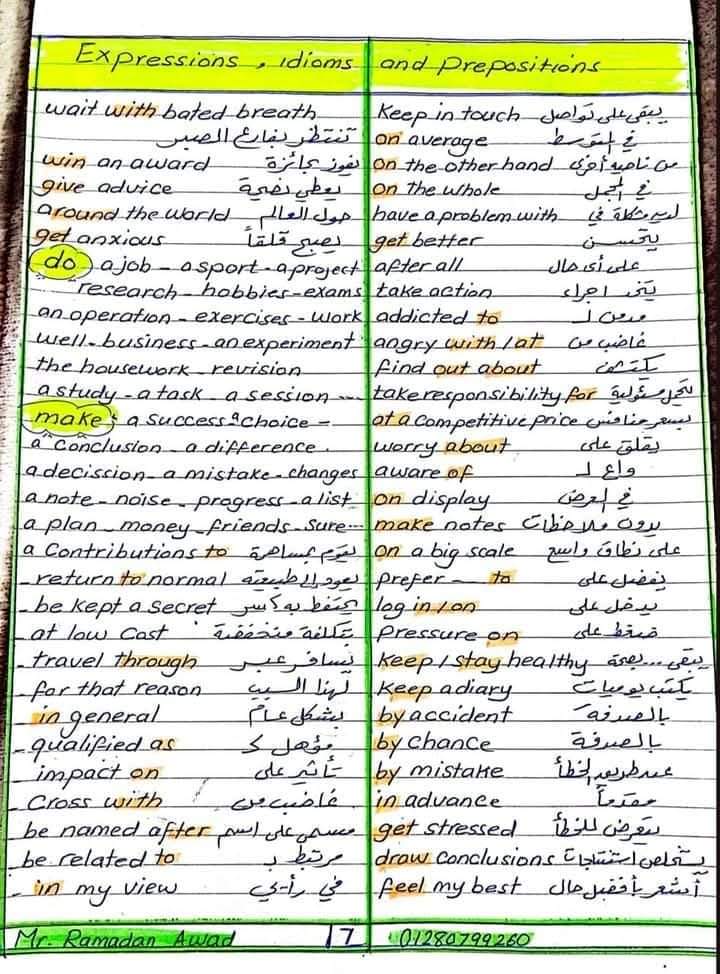 Expressions, Idioms and Prepositions
wait with bated breath
تنتظر بفارغ الصبر
win an award يفوز بجائزة
give advice يعطي نصيحة
around the world حول العالم
get anxious يصبح قلقاً
do a job - a sport - a project
research - hobbies - exams
an operation - exercises - work
well - business - an experiment
the housework - revision
a study - a task - a session ...
make: a success a choice -
a conclusion - a difference.
a decission - a mistake - changes
a note - noise - progress - a list
a plan - money - friends - sure ...
a Contributions to يقوم بمساهمة
- return to normal يعود إلى طبيعته
- be kept a secret يحتفظ به كسر
- at low cost بتكلفة منخفضة
- travel through يسافر عبر
- for that reason لهذا السبب
- in general بشكل عام
- qualified as مؤهل كـ
- impact on تأثير على
- Cross with غاضب من
be named after مسمى على اسم
- be related to مرتبط بـ
- in my view في رأيي
Keep in touch يبقى على تواصل
on average في المتوسط
on the other hand من ناحية أخرى
on the whole في المجمل
have a problem with لديه مشكلة في
get better يتحسن
after all على أى حال
take action يتخذ اجراء
addicted to مدمن لـ
angry with / at غاضب من
find out about يكتشف
take responsibility for يتحمل مسئولية
at a competitive price بسعر منافس
worry about يقلق على
aware of واع لـ
on display في العرض
make notes يدون ملاحظات
on a big scale على نطاق واسع
prefer — to يفضل على
log in / on يدخل على
Pressure on ضغط على
Keep / stay healthy يبقى ... بصحة
Keep a diary يكتب يوميات
by accident بالصدفة
by chance بالصدفة
by mistake عن طريق الخطأ
in advance مقدماً
get stressed يتعرض للخطأ
draw conclusions يستخلص استنتاجات
feel my best أشعر بأفضل حال
Mr. Ramadan Awad 17 01280799260